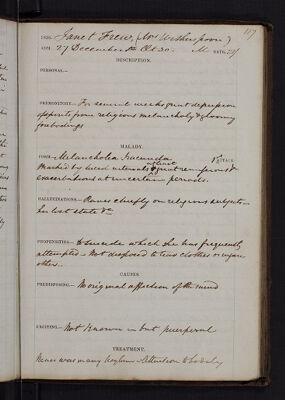 117
1838. Janet Frew, (Mrs Witherspoon)
ADM. 27 December Aet 30. M
DESCRIPTION.
PERSONAL.—
PREMONITORY.— For several weeks great depression of spirits from religious melancholy & gloomy forebodings
MALADY.
FORM.— Melancholia
Marked by lucid intervals & great remissions &
exacerbations at uncertain periods.
HALLUCINATIONS.— Raves chiefly on religious subjects—
her lost state &c
PROPENSITIES.— To Suicide which she has frequently
attempted— Not disposed to tear clothes or injure
others.
CAUSES
PREDISPOSING.— No original affection of the mind
EXCITING.— Not known — but puerperal
TREATMENT.
Never was in any Asylum— Attention to